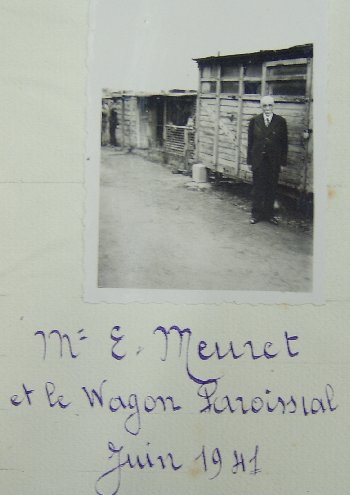 Mr E. Meuret
et le Wagon Paroissial
Juin 1941